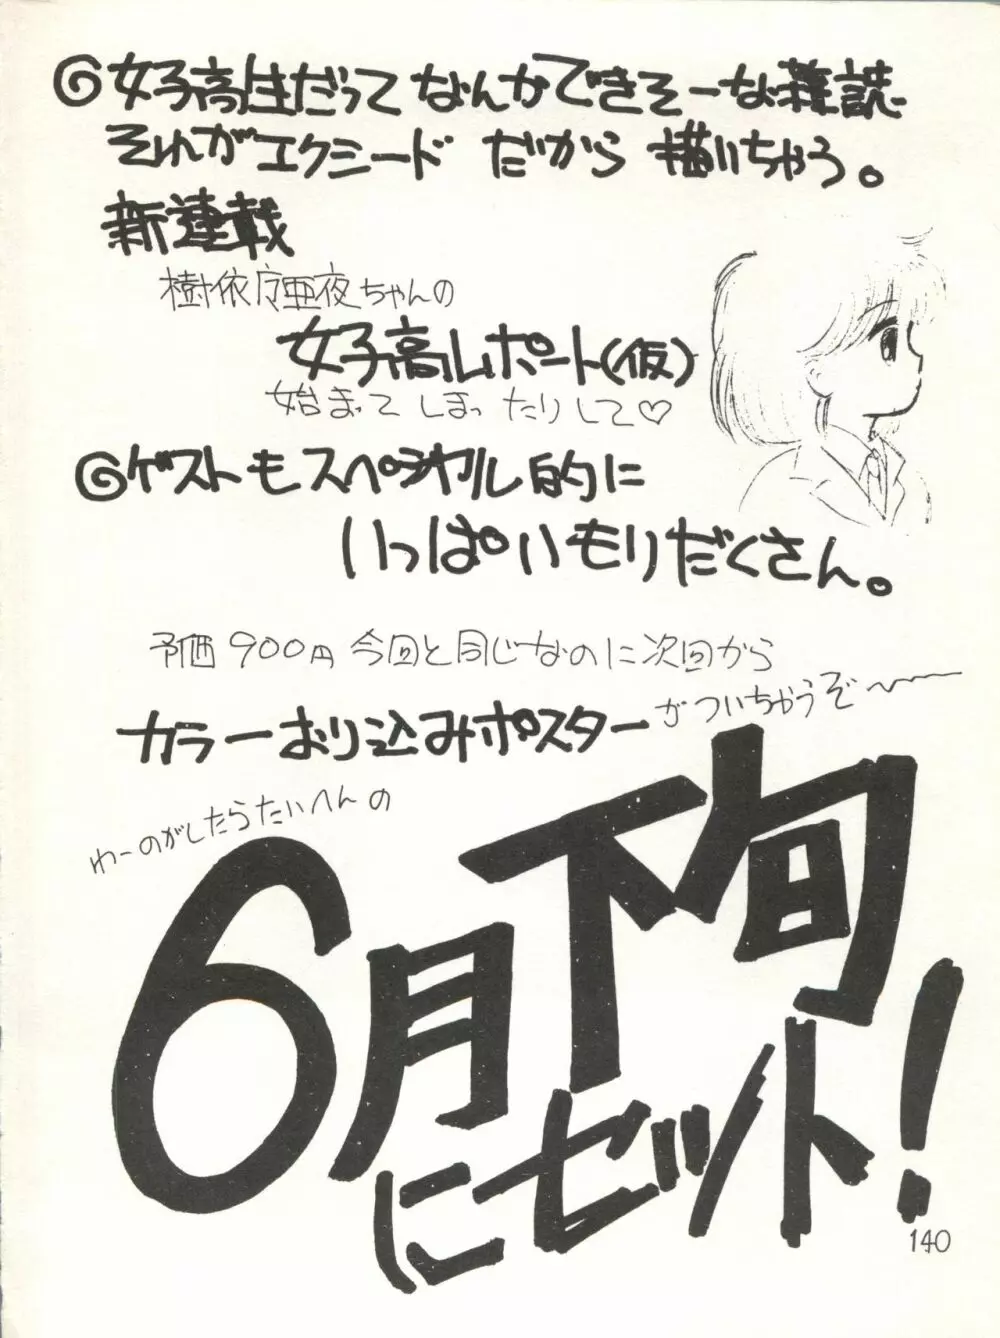 ◎女子高生だってなんかできそーな雑誌
それがエクシード だから 描いちゃう。
新連載
樹依亜夜ちゃんの
女子高レポート(仮)
始まってしまったりして♡
◎ゲストもスペシャル的に
いっぱいもりだくさん。
予価900円 今回と同じなのに次回から
カラーおり込みポスターがついちゃうぞ〜
わーのがしたらたいへんの
6月下旬
にセット!
140